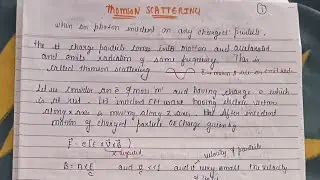 THOMSON SCATTERING
①
when an photon incident on any charged particle,
the charge particle comes into motion and accelerated
and emits radiation of same frequency. This is
called Thomson scattering
Let us consider an e⁻ of mass 'm' and having charge e which
is at rest. Let incident EM wave having electric vector
along x axis is moving along z axis, the After incident
motion of charged particle be change
F = e(E + V×B)
velocity of particle
B = n×E/c and very small the velocity